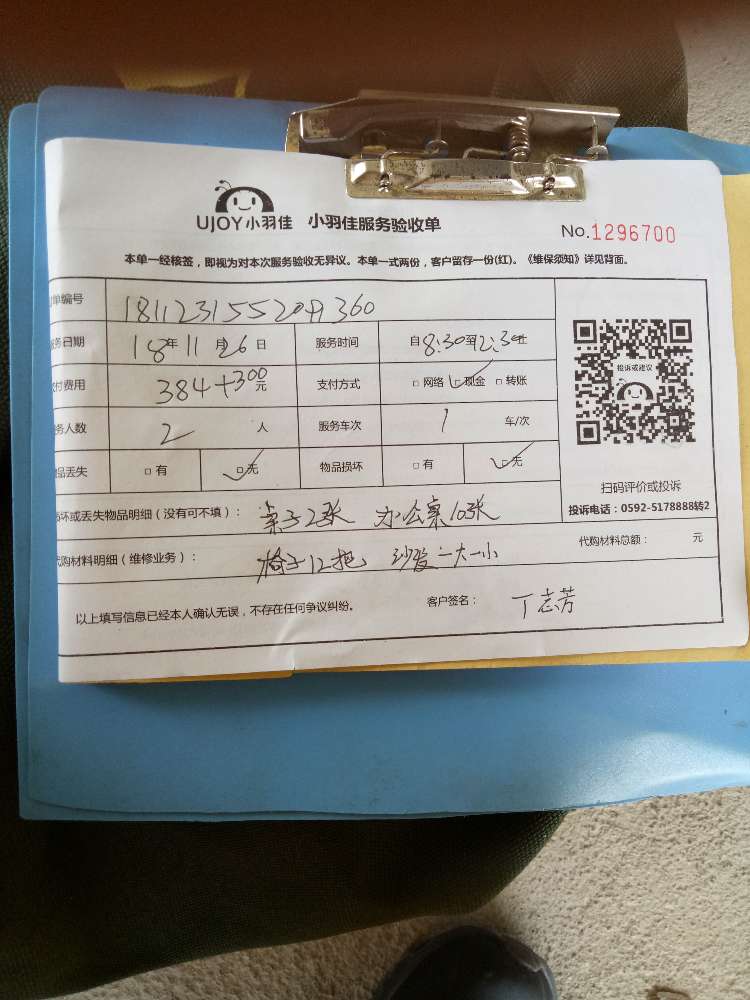 UJOY小羽佳 小羽佳服务验收单 No.1296700
本单一经核签，即视为对本次服务验收无异议。本单一式两份，客户留存一份(红)。《维保须知》详见背面。
单编号 181123155209360
务日期 18年11月26日 服务时间 自8:30至12:30止
付费用 384+300元 支付方式 □网络 □现金 □转账
务人数 2 人 服务车次 1 车/次
品丢失 □有 □无 物品损坏 □有 □无
投诉或建议
扫码评价或投诉
投诉电话：0592-5178888转2
坏或丢失物品明细（没有可不填）： 桌子2张 办公桌10张
代购材料明细（维修业务）： 椅子12把 沙发一大一小 代购材料总额： 元
以上填写信息已经本人确认无误，不存在任何争议纠纷。 客户签名： 丁志芳